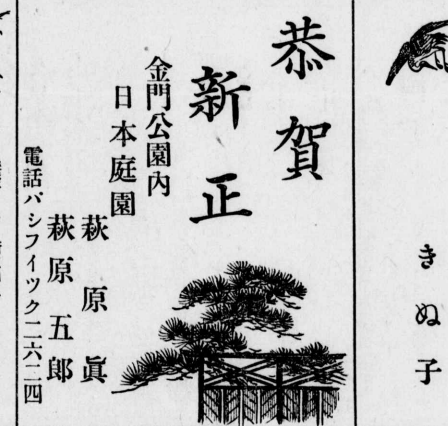 きぬ子
恭賀
新正
金門公園内
日本庭園
萩原眞
萩原五郎
電話パシフイツク二六二四